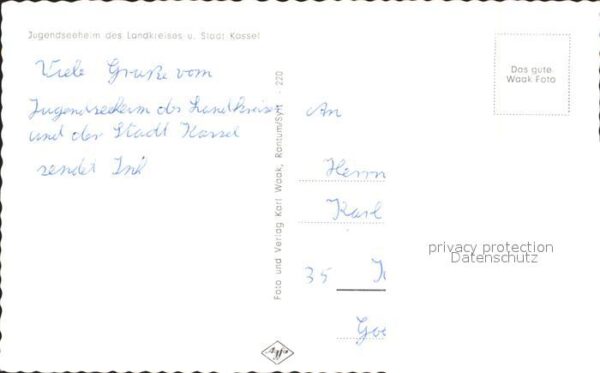 Jugendseeheim des Landkreises u. Stadt Kassel
Viele Gruße vom
Jugendseeheim des Landkreises
und der Stadt Kassel
sendet
Foto und Verlag Karl Waak, Rantum/Sylt - 220
Das gute
Waak Foto
An
Herrn
Karl
35
privacy protection
Datenschutz
Agfa